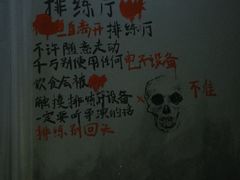 排练厅
自离开排练厅
不许随意走动
千万别使用任何电子设备
饮食会被
触摸排练厅设备
一定要听导演的话
排练别回头
不准